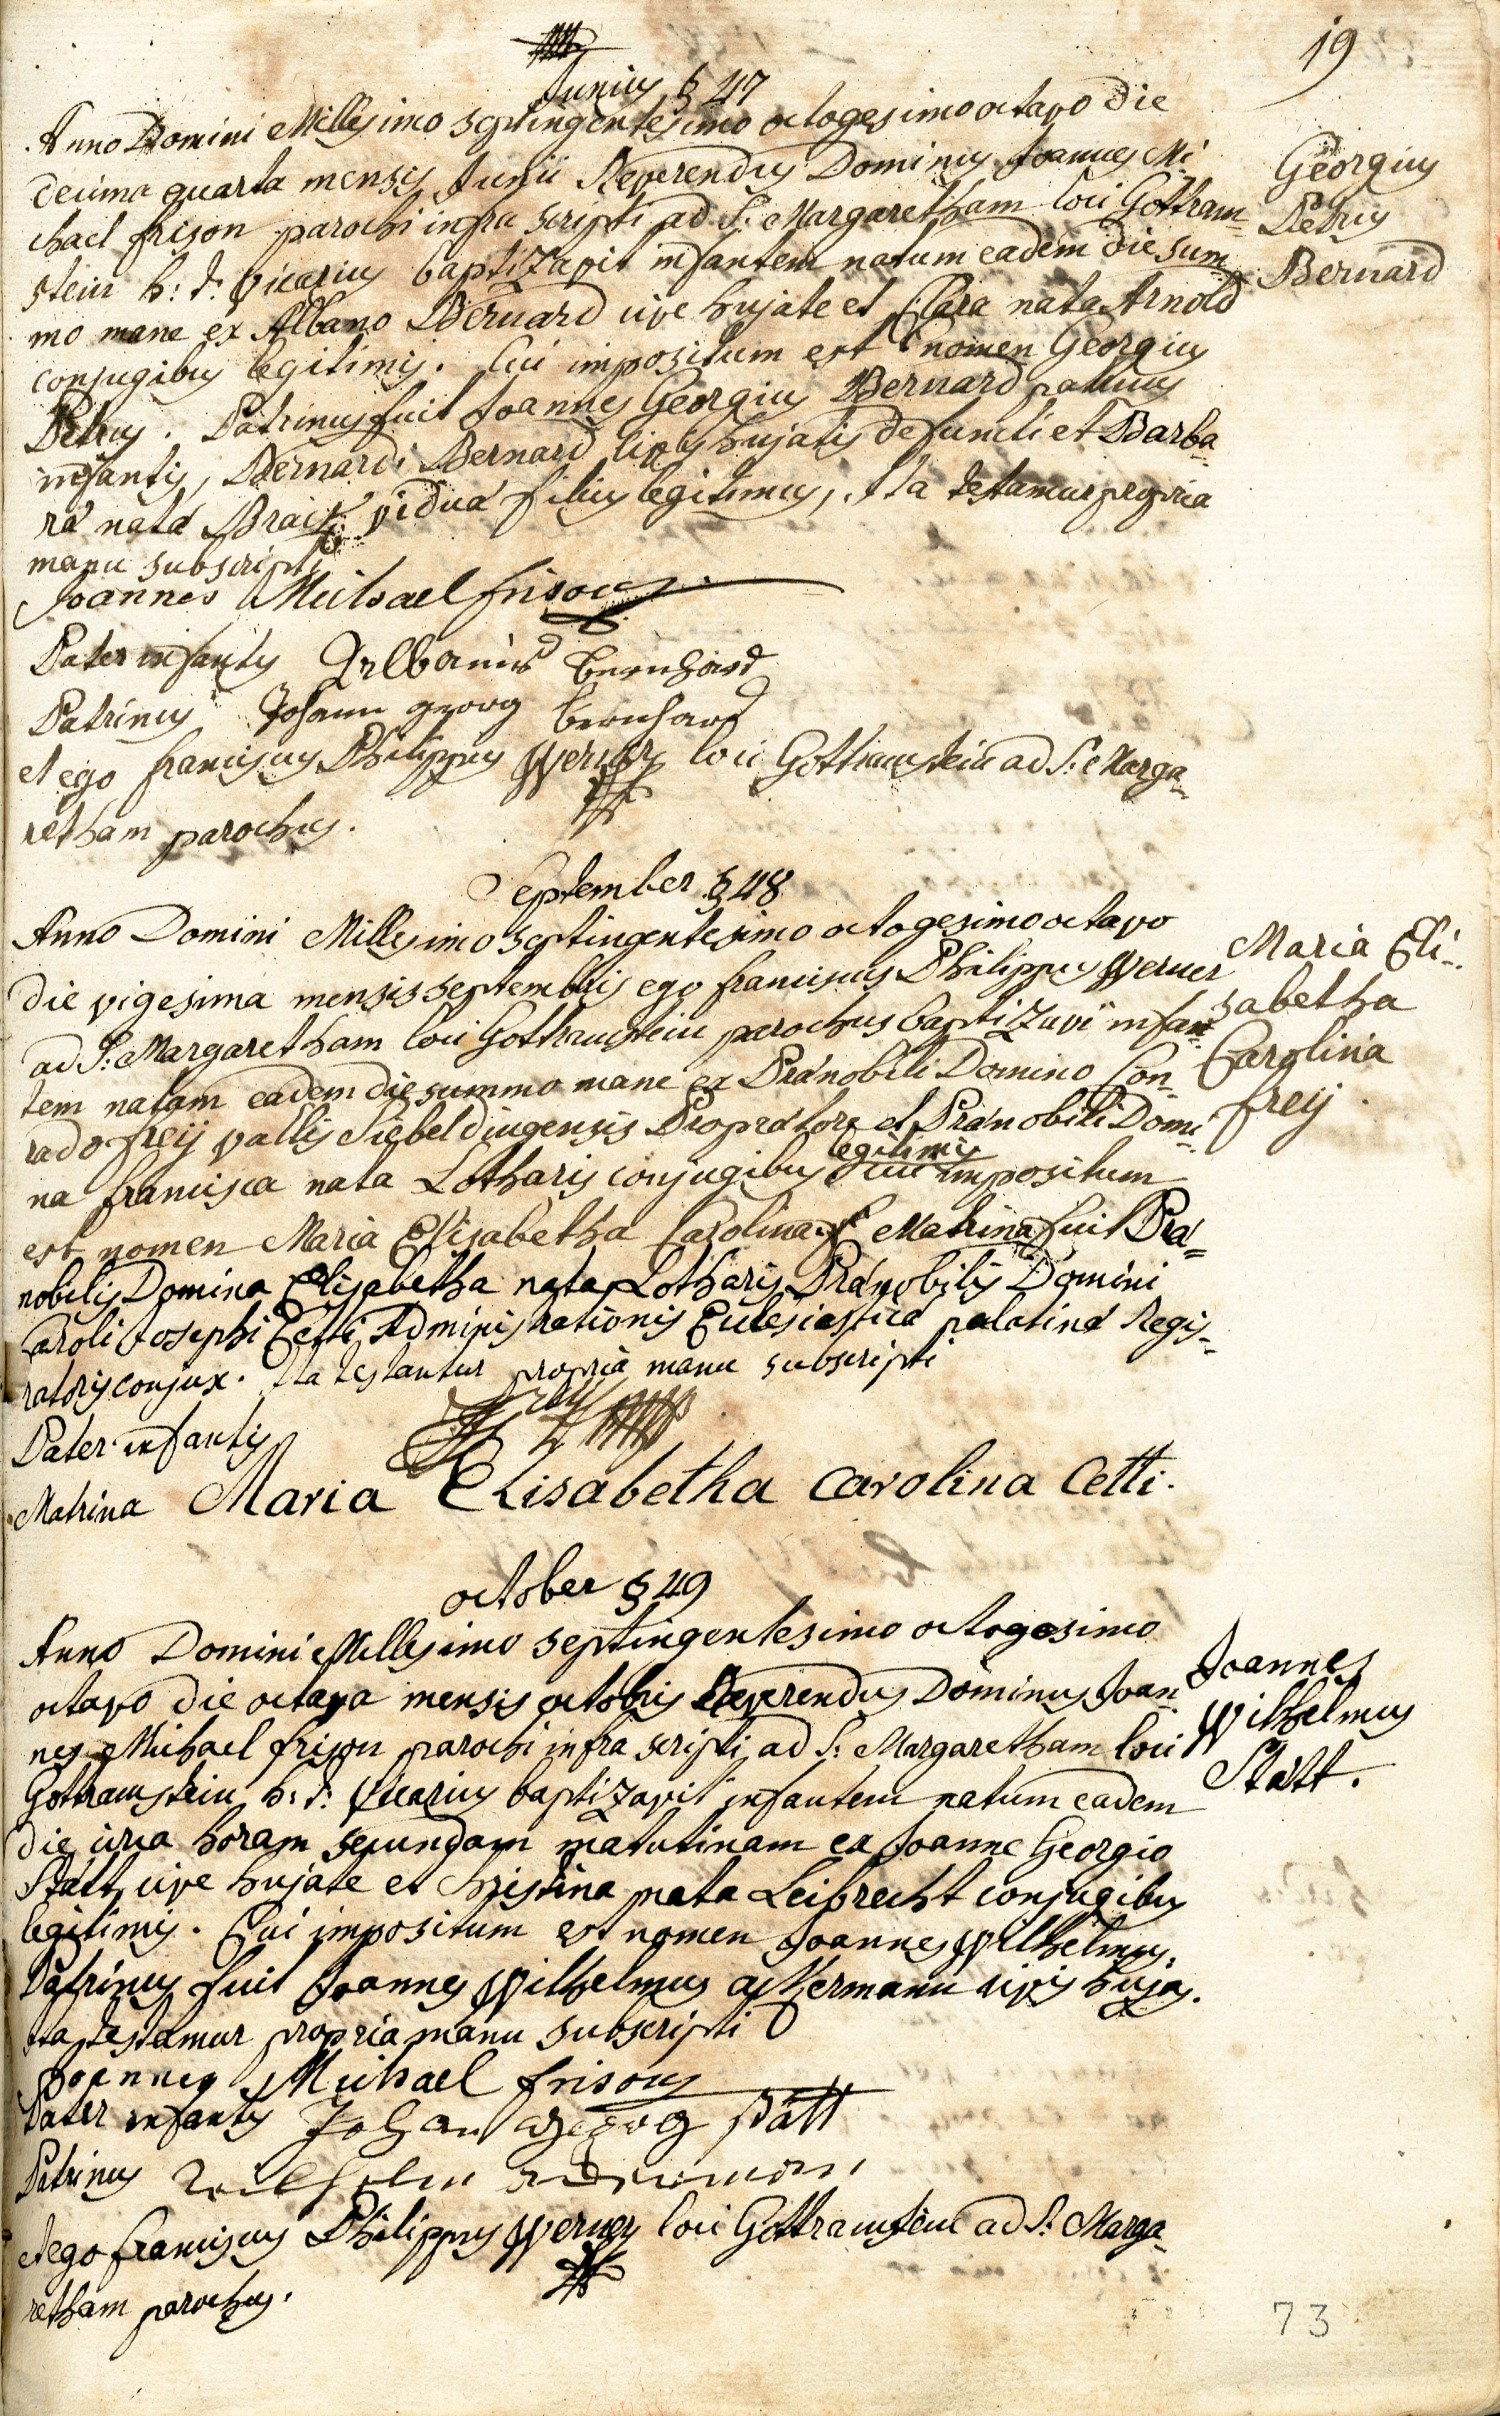 19
Junius § 47
Anno Domini Millesimo septingentesimo octogesimo octavo die
decima quarta mensis Junii Reverendus Dominus Joannes Mi
chael frison parochi infra scripti ad S: Margaretham loci Gottram=
stein h: t: vicarius baptizavit infantem natum eadem die sum
mo mane ex Albano Bernard cive hujate et Clara nata Arnold
conjugibus legitimis. Cui impositum est nomen Georgius
Petrus. Patrinus fuit Joannes Georgius Bernard patruus
infantis, Bernardi Bernard civis hujatis defuncti et Barba=
rá natá viduá filius legitimus, Ita testamur propria
manu subscripti
Georgius
Petrus
Bernard
Joannes Michael frison
Pater infantis Albanus bernhard
Patrinus Johann georg bernhard
et ego franciscus Philippus Werner loci Gottramstein ad S: Marga=
retham parochus.
September § 48
Anno Domini Millesimo septingentesimo octogesimo octavo
die vigesima mensis septembris ego franciscus Philippus Werner
ad S: Margaretham loci Gottramstein parochus baptizavi infan=
tem natam eadem die summo mane ex Prænobili Domino Con=
rado freij vallis Siebeldingensis Propræetore et Prænobili Domi=
na francisca nata Lotharis conjugibus legitimis cui impositum
est nomen Maria Elisabetha Carolina. Matrina fuit Præ=
nobilis Domina Elisabetha nata Lotharis Prænobilis Domini
Caroli Josephi Cetti Administrationis Ecclesiasticá palatiná Regis=
ratoris conjux. Ita testantur propria manu subscripti
Maria Eli=
sabetha
Carolina
freij.
Pater infantis freij
Matrina Maria Elisabetha Carolina Cetti.
october § 49
Anno Domini Millesimo septingentesimo octogesimo
octavo die octava mensis octobris Reverendus Dominus Joan
nes Michael frison parochi infra scripti ad S: Margaretham loci
Gottramstein h: t: Vicarius baptizavit infantem natum eadem
die circa horam secundam matutinam ex Joanne Georgio
Stätt cive hujate et Christina nata Leibrecht conjugibus
legitimis. Cui impositum est nomen Joannes Wilhelmus.
Patrinus fuit Joannes Wilhelmus ackermann civis hujas.
Ita testamur propria manu subscripti
Joannes
Wilhelmus
Stätt.
Joannes Michael frison
Pater infantis Johan georg stätt
Patrinus wilhelm
et ego franciscus Philippus Werner loci Gottramstein ad S: Marga=
retham parochus.
73